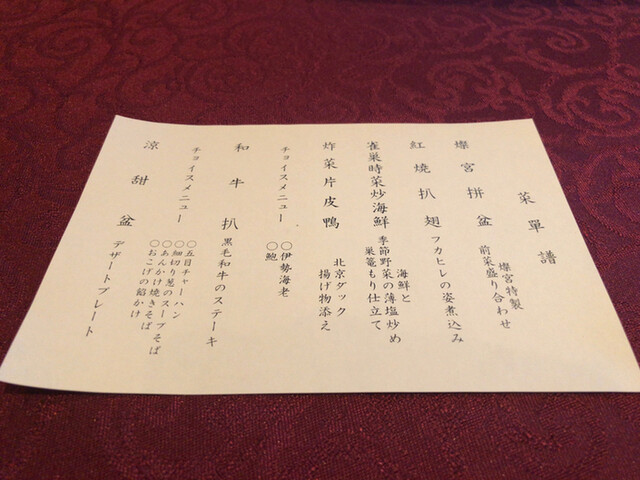 菜單譜
燦宮拼盆
燦宮特製
前菜盛り合わせ
紅燒扒翅
フカヒレの姿煮込み
雀巣時菜炒海鮮
海鮮と
季節野菜の薄塩炒め
巣篭もり仕立て
炸菜片皮鴨
北京ダック
揚げ物添え
チョイスメニュー
〇伊勢海老
〇鮑
和牛扒
黒毛和牛のステーキ
チョイスメニュー
〇五目チャーハン
〇細切り葱のスープそば
〇あんかけ焼きそば
〇おこげの餡かけ
涼甜盆
デザートプレート